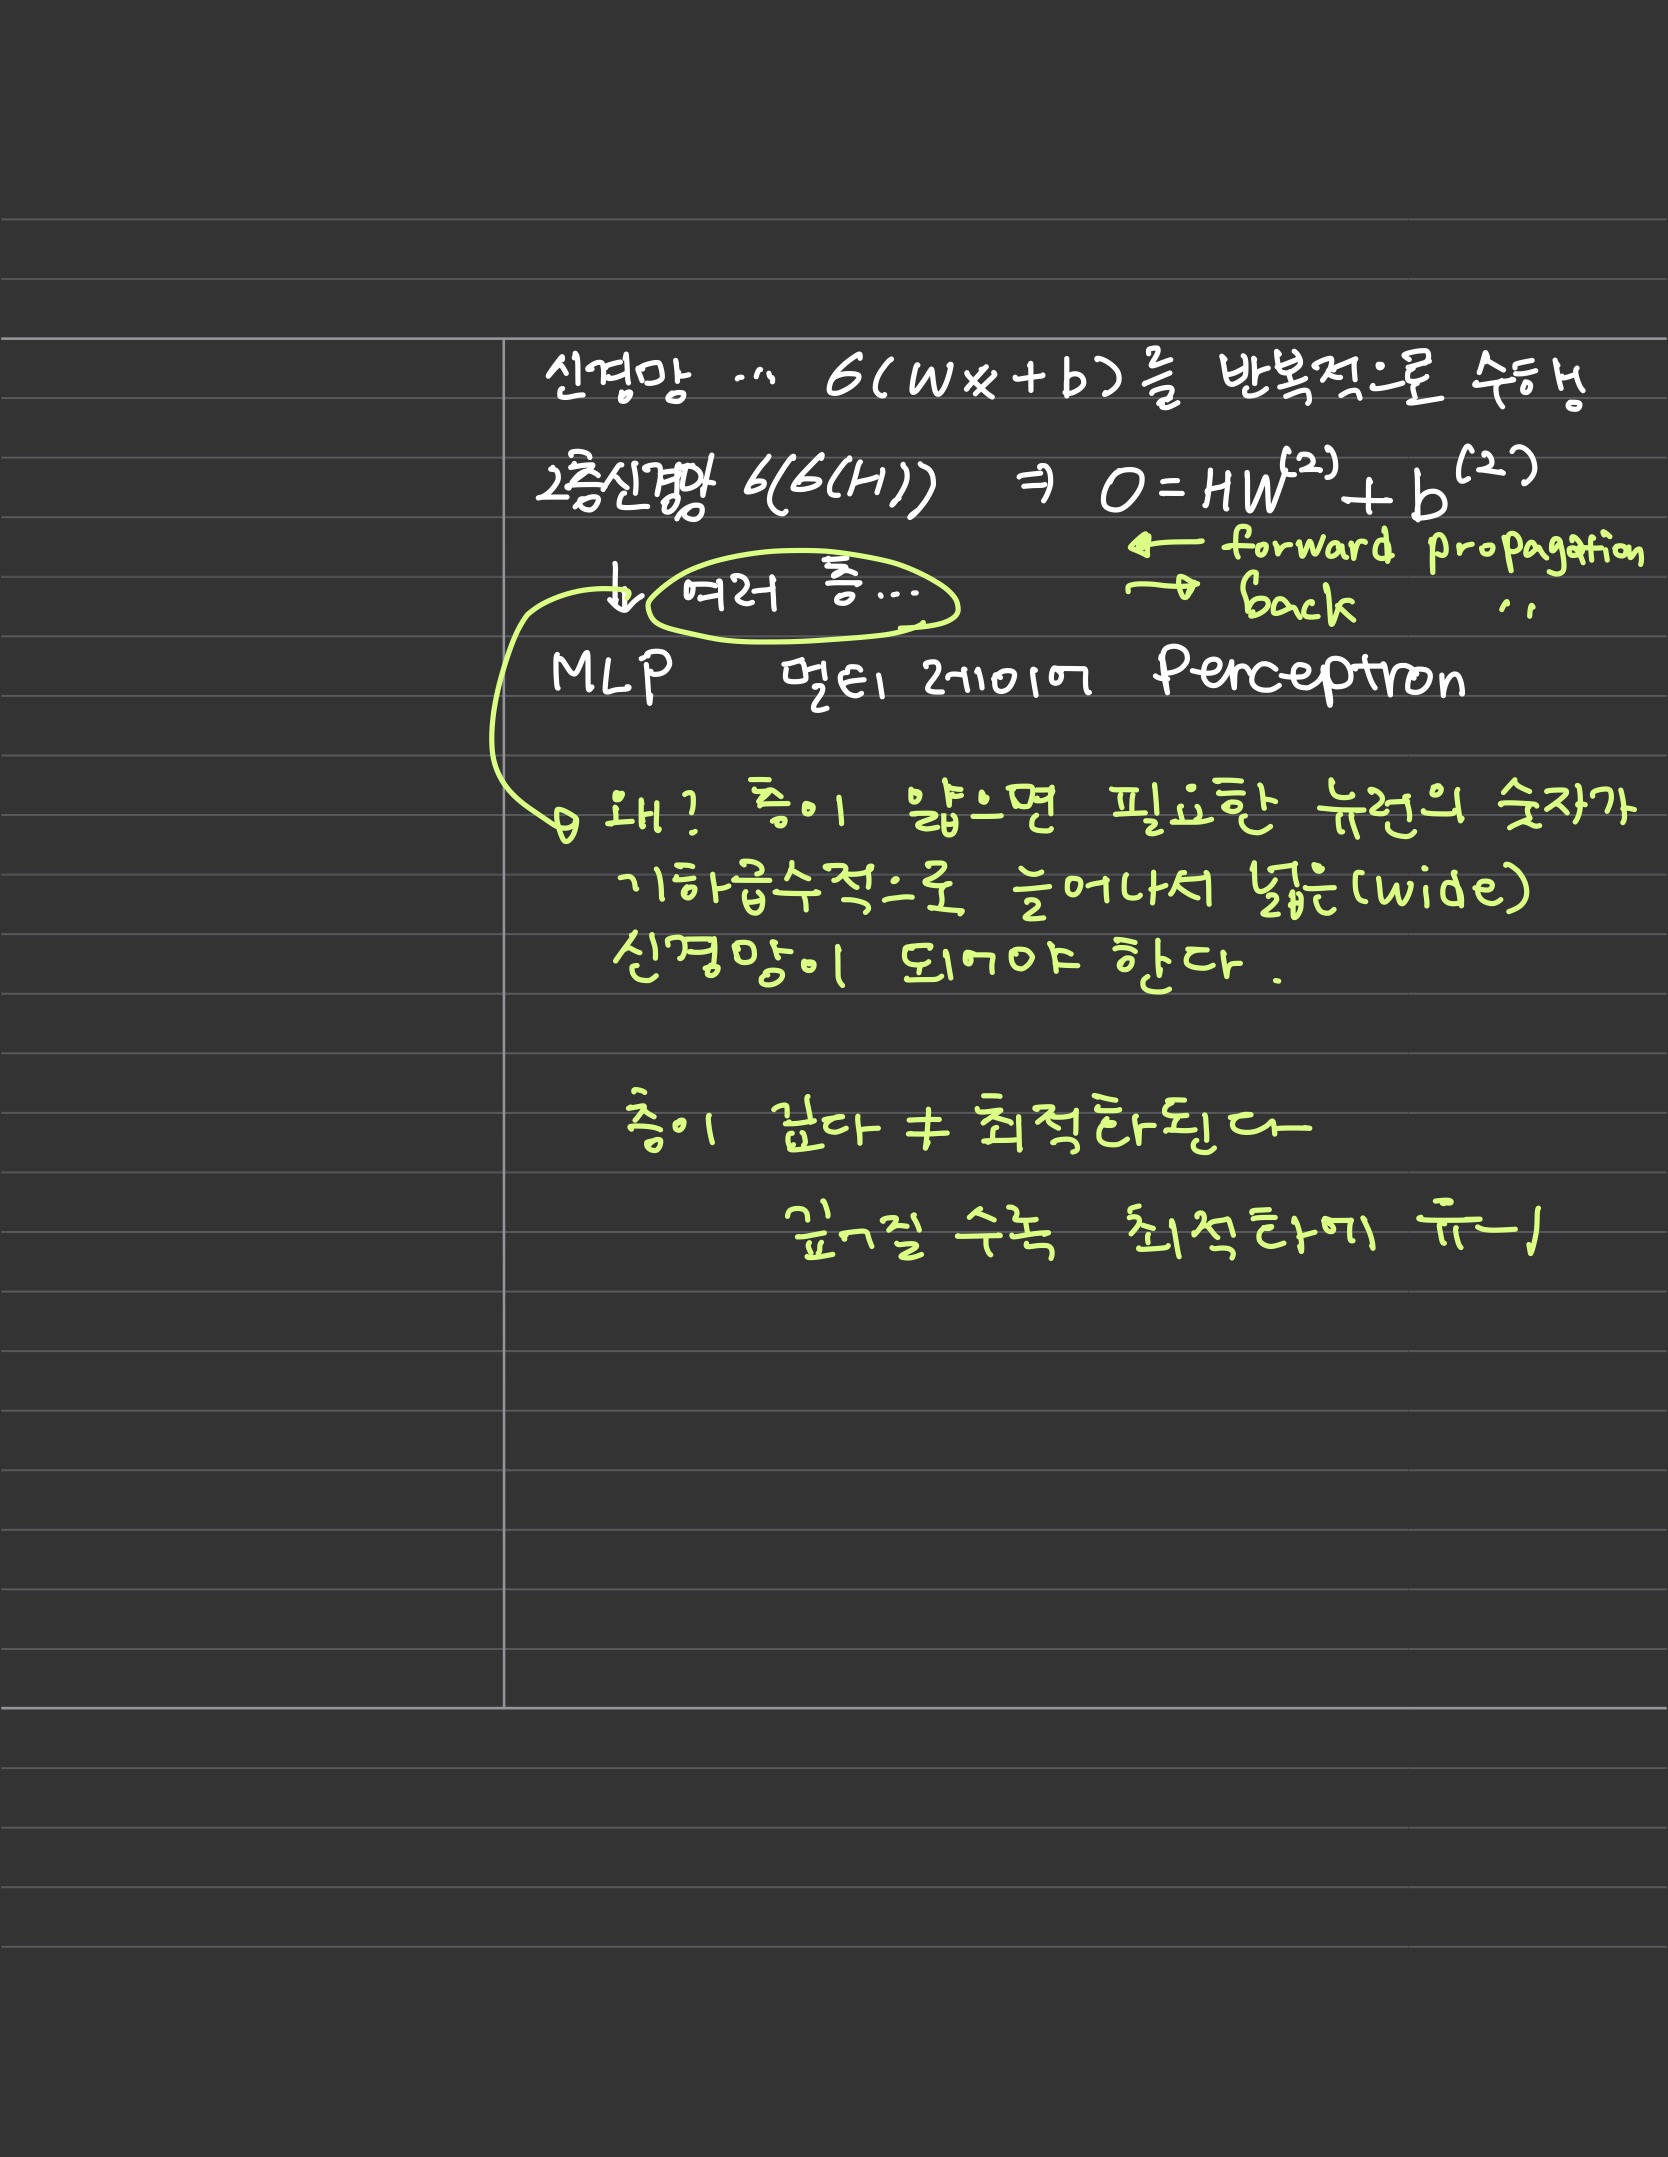 신경망 ... σ(Wx+b)를 반복적으로 수행
2층신경망 σ(σ(H)) ⇒ O=HW⁽²⁾+b⁽²⁾
← forward propagation
↓ 여러 층...
→ back 〃
MLP 멀티 레이어 Perceptron
왜? 층이 얇으면 필요한 뉴런의 숫자가
기하급수적으로 늘어나서 넓은(wide)
신경망이 되어야 한다.
층이 깊다 ≠ 최적화된다
깊어질 수록 최적화에